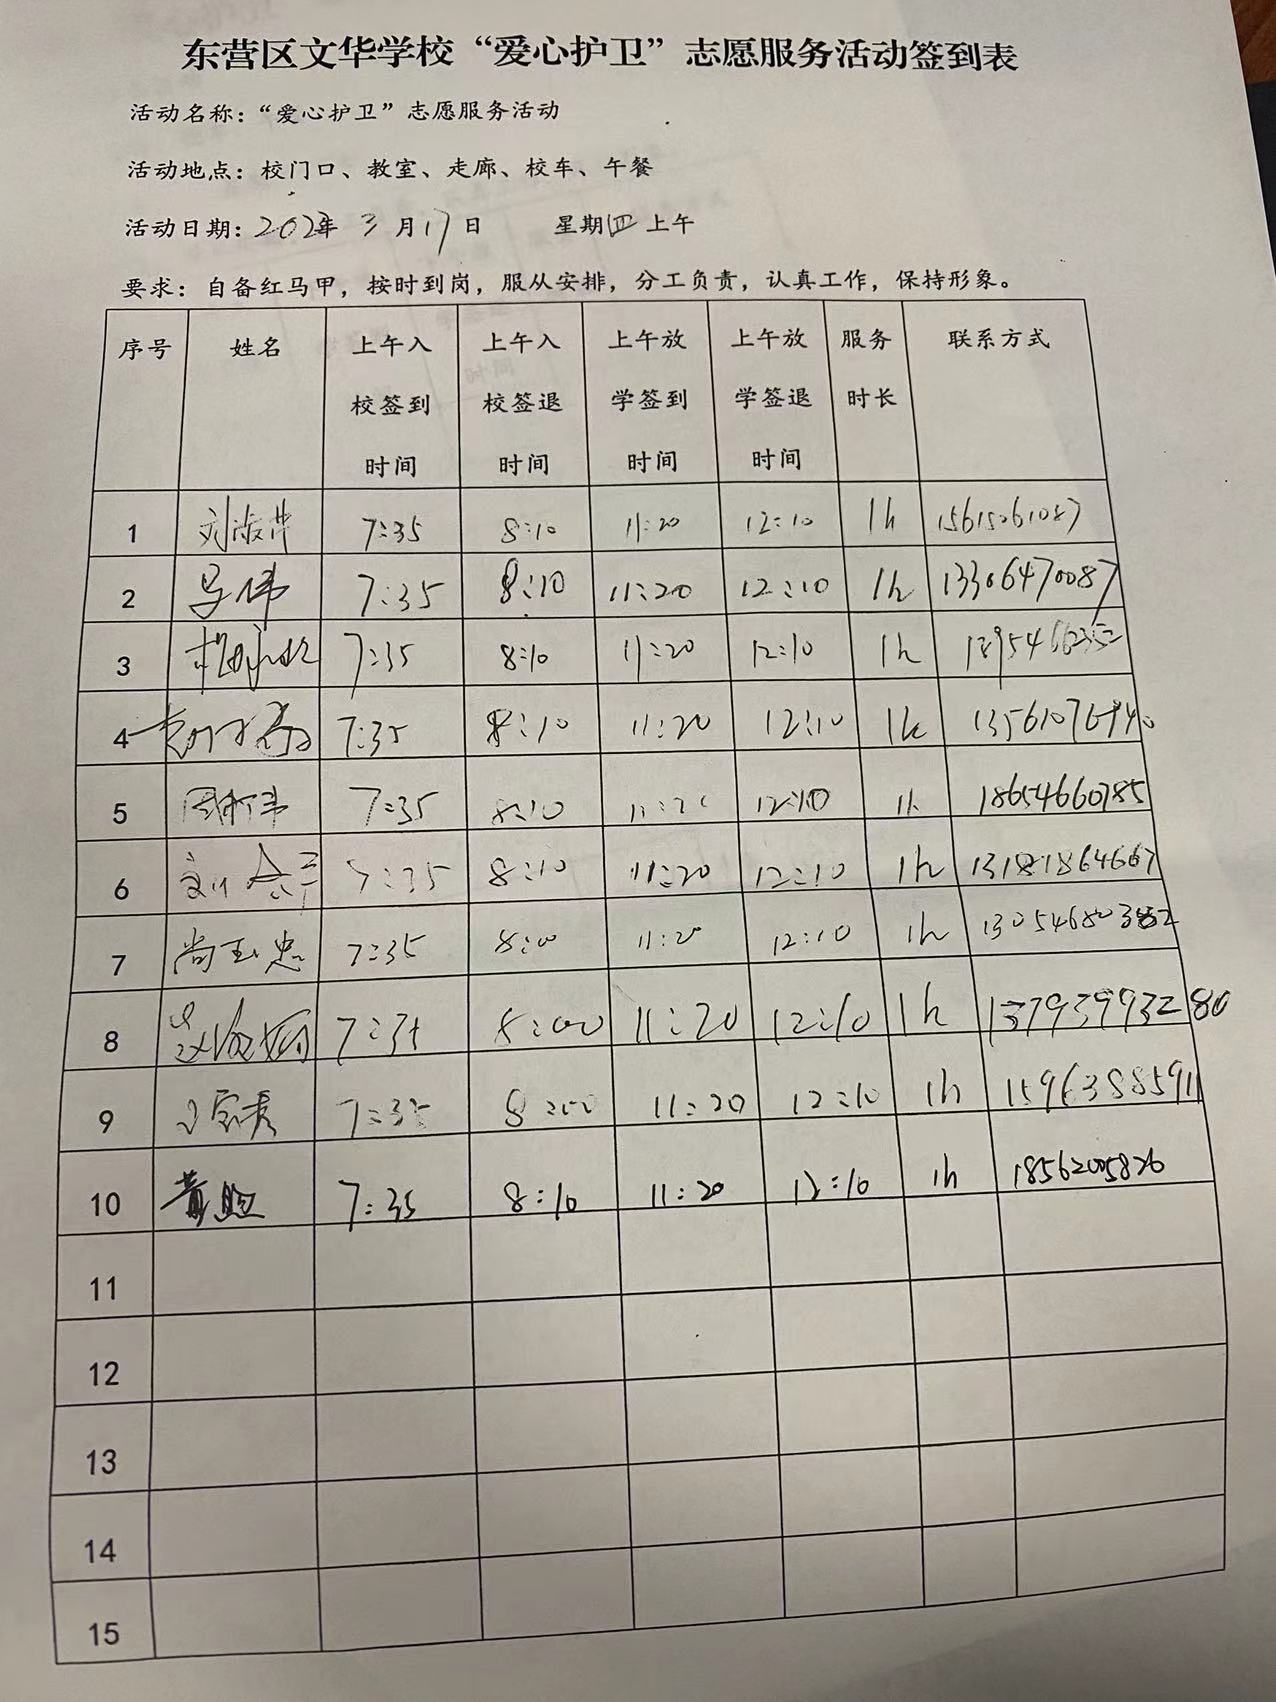 东营区文华学校“爱心护卫”志愿服务活动签到表
活动名称：“爱心护卫”志愿服务活动
活动地点：校门口、教室、走廊、校车、午餐
活动日期：2023年 3 月 17 日 星期四 上午
要求：自备红马甲，按时到岗，服从安排，分工负责，认真工作，保持形象。
序号 姓名 上午入校签到时间 上午入校签退时间 上午放学签到时间 上午放学签退时间 服务时长 联系方式
1 刘淑芹 7:35 8:10 11:20 12:10 1h 15615061087
2 7:35 8:10 11:20 12:10 1h 13306470087
3 7:35 8:10 11:20 12:10 1h
4 7:35 8:10 11:20 12:10 1h
5 7:35 8:10 11:20 12:10 1h 18654660785
6 7:35 8:10 11:20 12:10 1h 13181864667
7 尚玉忠 7:35 11:20 12:10 1h
8 7:35 8:00 11:20 12:10 1h 13793993280
9 7:35 8:00 11:20 12:10 1h 15963885911
10 7:35 8:10 11:20 12:10 1h 18562005826
11
12
13
14
15